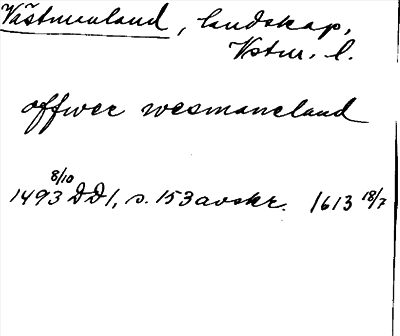 Västmanland, landskap,
Vstm. l.
offwer wesmaneland
1493 8/10 DD1, s. 153 avskr. 1613 18/7